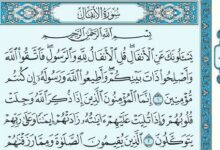 سورة الأنفال
بسم الله الرحمن الرحيم
يسئلونك عن الأنفال قل الأنفال لله والرسول فاتقوا الله
وأصلحوا ذات بينكم وأطيعوا الله ورسوله إن كنتم
مؤمنين ١ إنما المؤمنون الذين إذا ذكر الله وجلت
قلوبهم وإذا تليت عليهم ءايته زادتهم إيمنا وعلى ربهم
يتوكلون ٢ الذين يقيمون الصلوة ومما رزقنهم